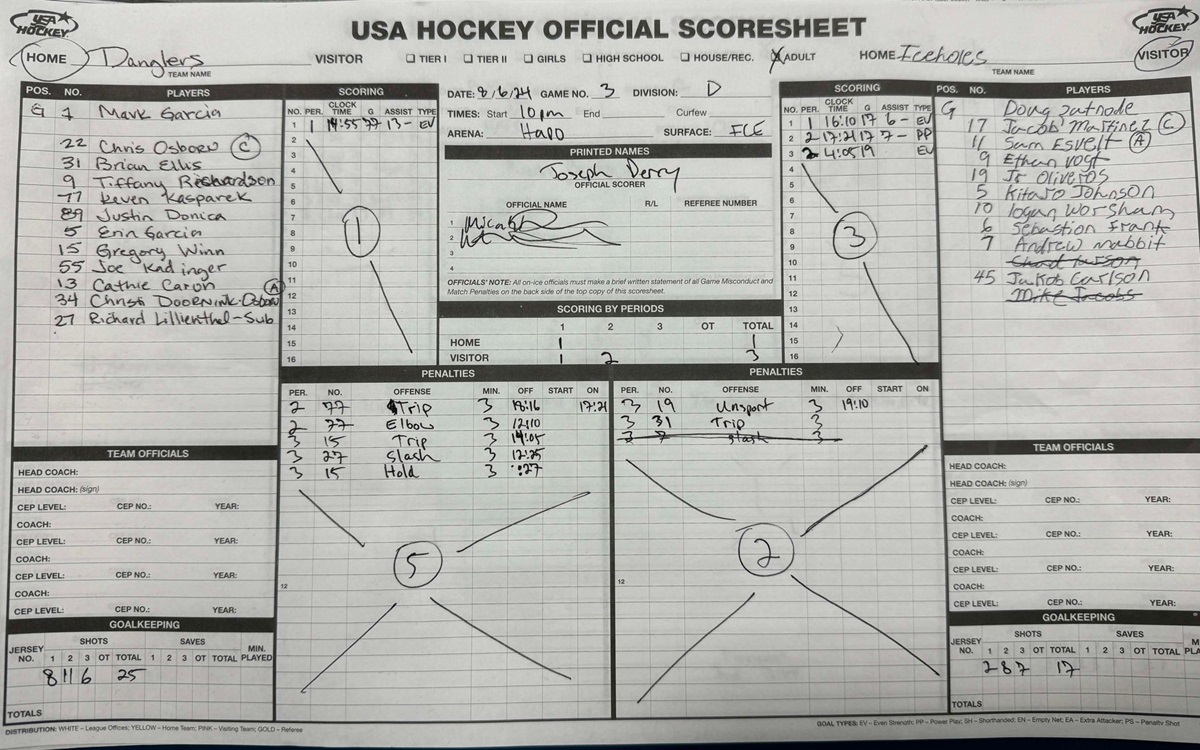 USA HOCKEY
USA HOCKEY OFFICIAL SCORESHEET
USA HOCKEY
HOME Danglers VISITOR ☐ TIER I ☐ TIER II ☐ GIRLS ☐ HIGH SCHOOL ☐ HOUSE/REC. ☒ ADULT HOME Iceholes VISITOR
TEAM NAME
TEAM NAME
POS. NO. PLAYERS
G 1 Mark Garcia
22 Chris Osborn C
31 Brian Ellis
9 Tiffany Richardson
77 Keven Kasparek
89 Justin Donica
5 Erin Garcia
15 Gregory Winn
55 Joe Kadinger
13 Cathie Caron A
34 Christi Doornink-Osborn
27 Richard Lillienthal-Sub
SCORING
NO. PER. CLOCK TIME G ASSIST TYPE
1 1 14:55 77 13 - EV
2
3
4
5
6
7
8
9
10
11
12
13
14
15
16
1
DATE: 8/6/24 GAME NO. 3 DIVISION: D
TIMES: Start 10pm End Curfew
ARENA: Hapo SURFACE: ICE
PRINTED NAMES
Joseph Derry
OFFICIAL SCORER
OFFICIAL NAME R/L REFEREE NUMBER
1
2
3
4
OFFICIALS' NOTE: All on-ice officials must make a brief written statement of all Game Misconduct and
Match Penalties on the back side of the top copy of this scoresheet.
SCORING BY PERIODS
1 2 3 OT TOTAL
HOME 1 1
VISITOR 1 2 3
SCORING
NO. PER. CLOCK TIME G ASSIST TYPE
1 1 16:10 17 6 - EV
2 2 17:21 17 7 - PP
3 2 4:05 19 EV
4
5
6
7
8
9
10
11
12
13
14
15
16
3
POS. NO. PLAYERS
G Doug Zutnode
17 Jacob Martinez C
11 Sam Esvelt A
9 Ethan Vogt
19 Jr Oliveros
5 Kitaro Johnson
10 logan Worsham
6 Sebastion Frank
7 Andrew Mabbit
45 Jakob Carlson
Mike Jacobs
PENALTIES
PER. NO. OFFENSE MIN. OFF START ON
2 77 Trip 3 18:16 17:21
2 77 Elbow 3 12:10
3 15 Trip 3 14:05
3 27 Slash 3 12:25
3 15 Hold 3 :27
12
5
PENALTIES
PER. NO. OFFENSE MIN. OFF START ON
3 19 Unsport 3 19:10
3 31 Trip 3
3 7 Slash 3
12
2
TEAM OFFICIALS
HEAD COACH:
HEAD COACH: (sign)
CEP LEVEL: CEP NO.: YEAR:
COACH:
CEP LEVEL: CEP NO.: YEAR:
COACH:
CEP LEVEL: CEP NO.: YEAR:
COACH:
CEP LEVEL: CEP NO.: YEAR:
GOALKEEPING
SHOTS SAVES
JERSEY NO. 1 2 3 OT TOTAL 1 2 3 OT TOTAL MIN. PLAYED
8 11 6 25
TOTALS
TEAM OFFICIALS
HEAD COACH:
HEAD COACH: (sign)
CEP LEVEL: CEP NO.: YEAR:
COACH:
CEP LEVEL: CEP NO.: YEAR:
COACH:
CEP LEVEL: CEP NO.: YEAR:
COACH:
CEP LEVEL: CEP NO.: YEAR:
GOALKEEPING
SHOTS SAVES
JERSEY NO. 1 2 3 OT TOTAL 1 2 3 OT TOTAL
2 8 7 17
TOTALS
DISTRIBUTION: WHITE – League Offices; YELLOW – Home Team; PINK – Visiting Team; GOLD – Referee
GOAL TYPES: EV – Even Strength; PP – Power Play; SH – Shorthanded; EN – Empty Net; EA – Extra Attacker; PS – Penalty Shot